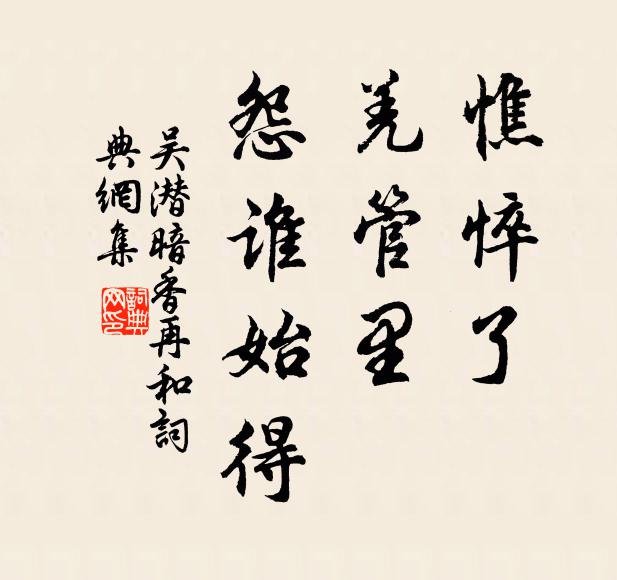 憔悴了
羌管里
怨谁始得
吴潜暗香再和詞
典網集
詞典
网印